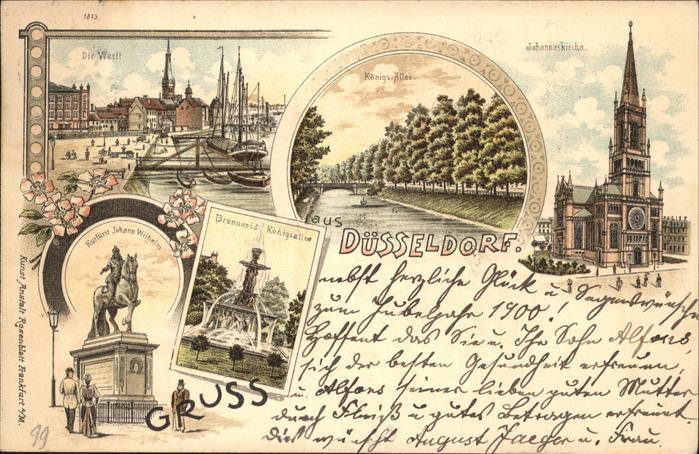 1833.
Die Werft
Königs-Allee.
Johanneskirche.
Kurfürst Johann Wilhelm
Brunnen i.d. Königsallee
GRUSS
aus
DÜSSELDORF.
Kunst-Anstalt Rosenblatt Frankfurt a/M.
nebst herzliche Glück u. Segenswünsche
zum Jubeljahr 1900!
Hoffent das Sie u. Ihr Sohn Alfons
sich der besten Gesundheit erfreuen,
u. Alfons seiner lieben guten Mutter
durch Fleiß u gutes Betragen erfreunt.
Dies wünscht August Jaeger u. Frau.
99